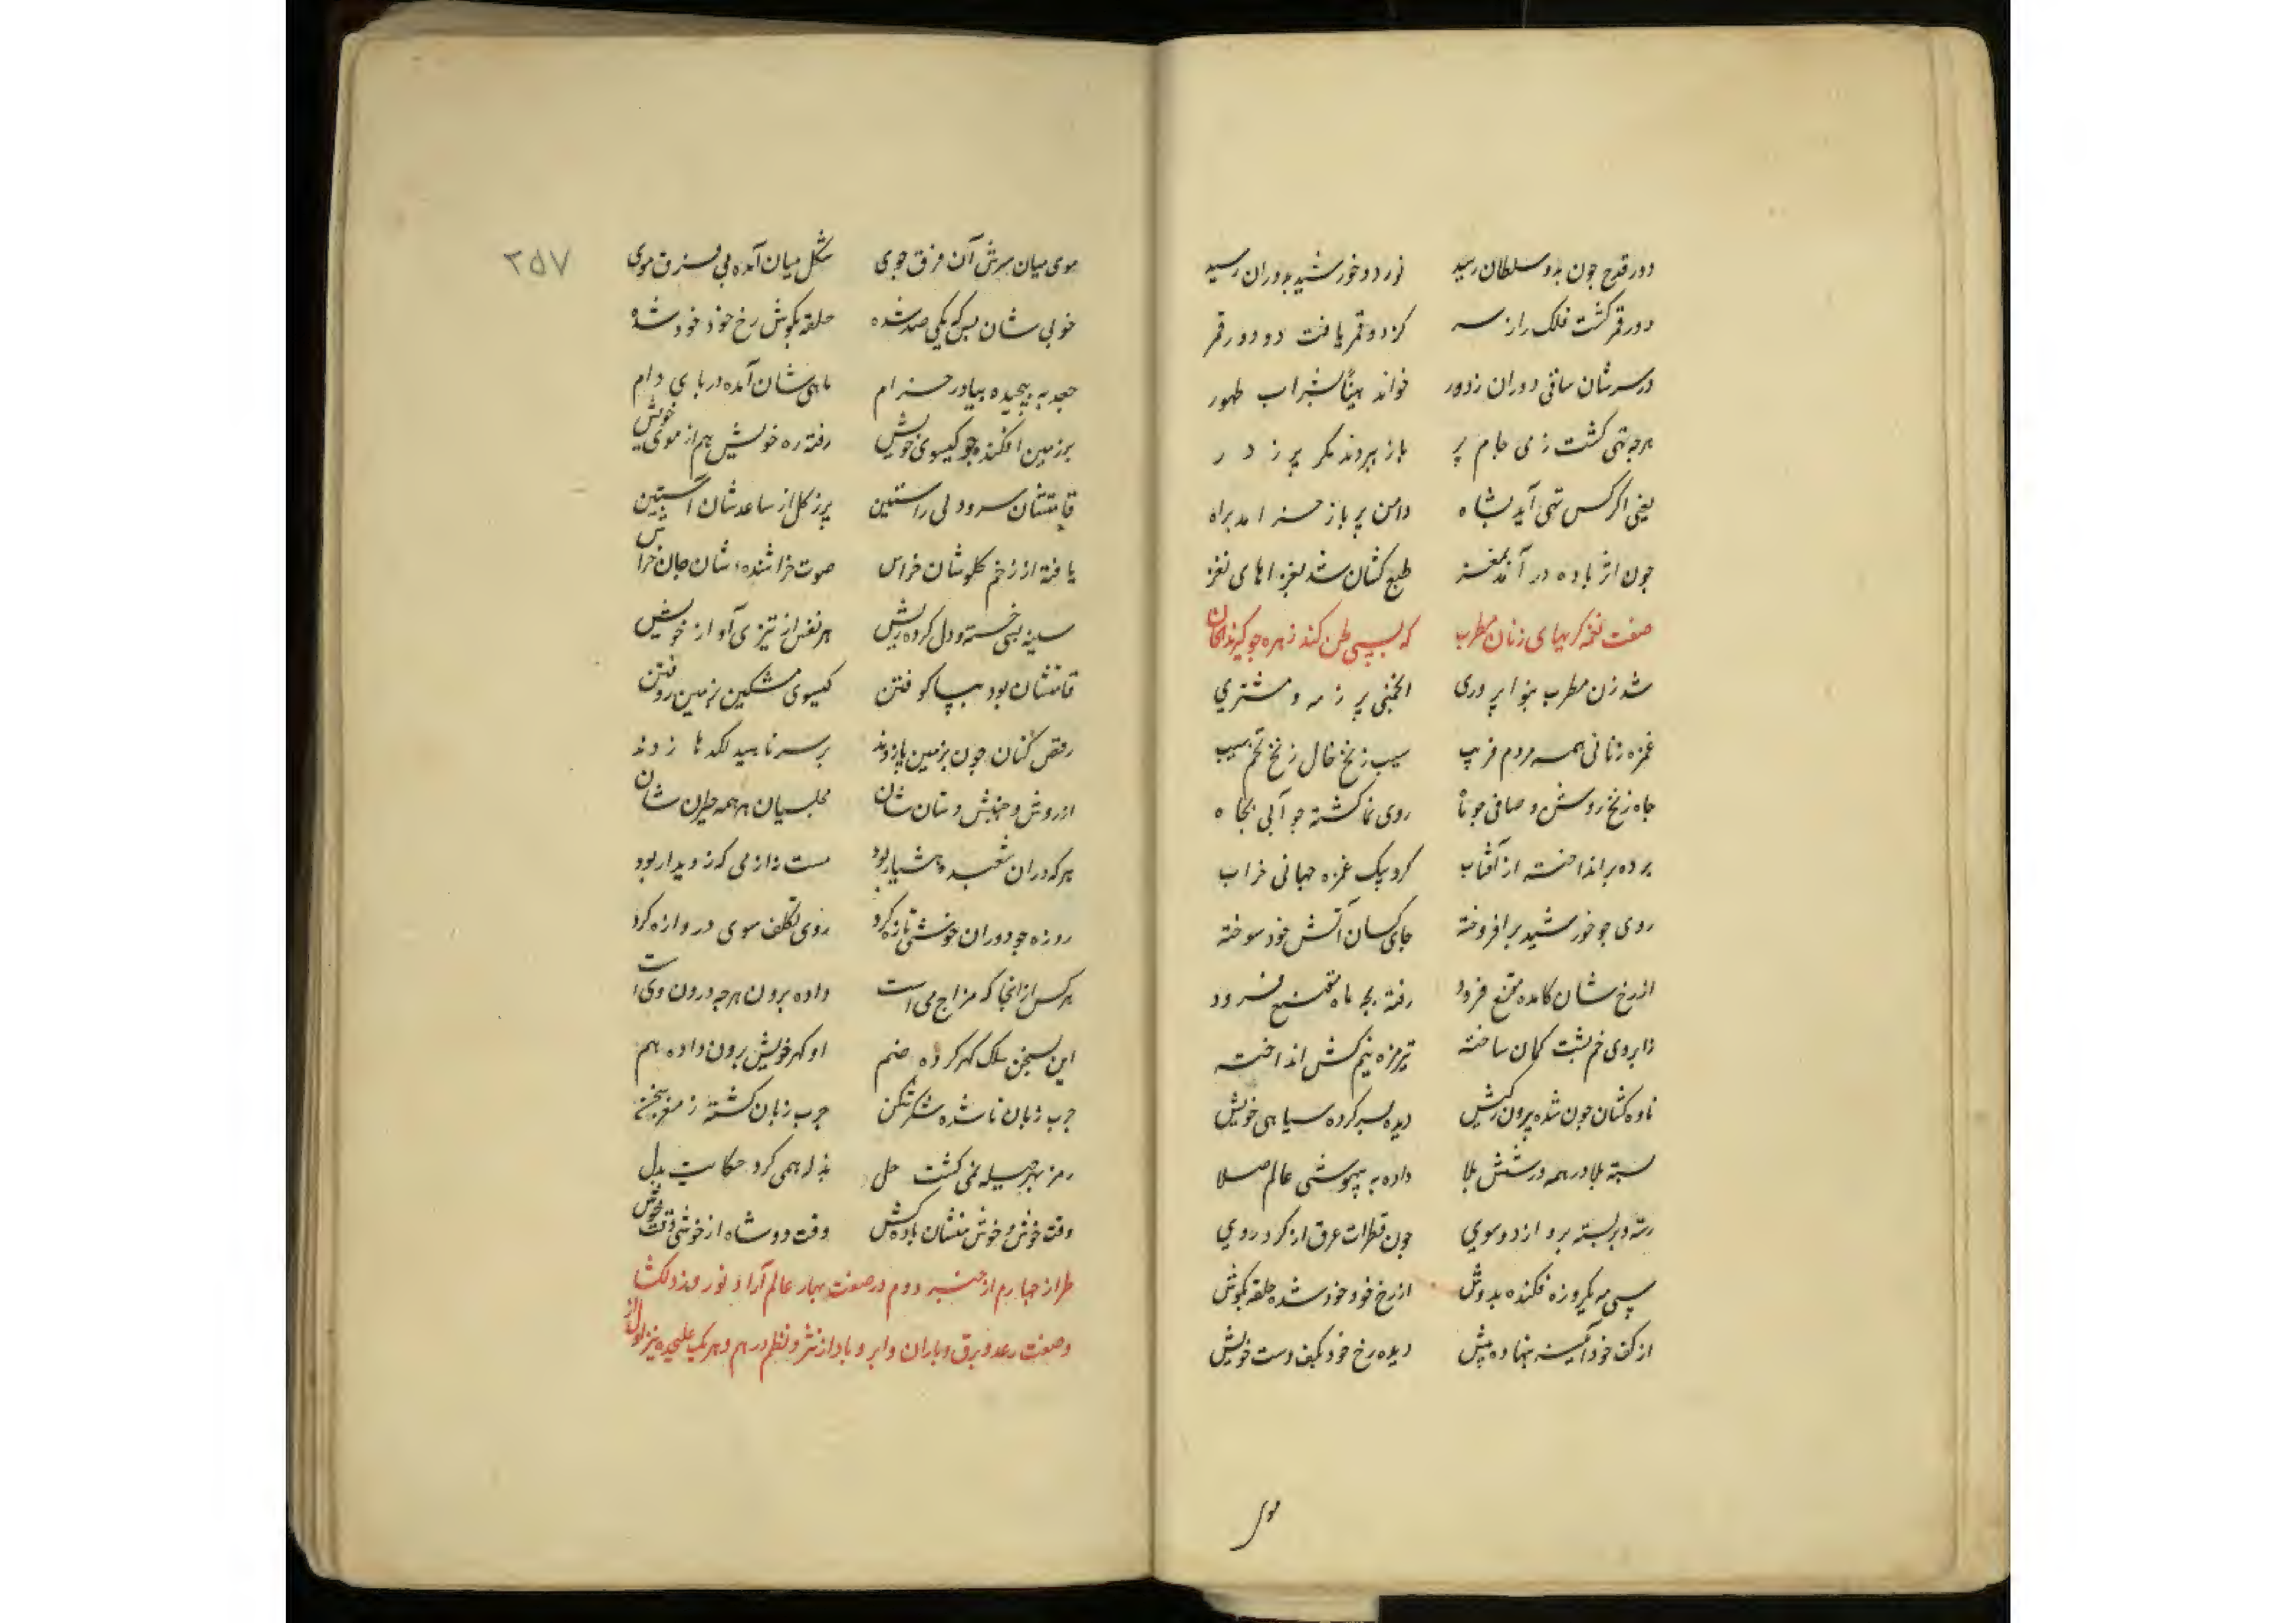 دور قدح چون بدو سلطان رسید نور دو خورشید بدوران رسید
دور قمر گشت فلک را ز سر کز دو قمر یافت دو دور قمر
در سرشان ساقی دوران ز دور خواند هنیئا لشراب طهور
هرچه تهی گشت ز می جام پر باز ببردند مگر پر ز در
یعنی اگر کس تهی آید بشاه دامن پر باز خرامد براه
چون اثر باده در آمد بمغز طبع کشان شد بغزلهای نغز
صفت نغمه گریهای زنان مطرب که بسی طن کند زهره چو گیرند الحان
شد زن مطرب بنوا پروری انجمنی پر ز مه و مشتری
غمزه زنانی همه مردم فریب سیب زنخ خال زنخ تخم سیب
چاه زنخ روشن و صافی چو ماه روی نما گشته چو آبی بچاه
پرده برانداخته از آفتاب کرد بیک غمزه جهانی خراب
روی چو خورشید برافروخته جای کسان آتش خود سوخته
از رخ شان کامده مقنع فرود رفته بچه ماه مقنع فرود
ز ابروی خم پشت کمان ساخته تیر مژه نیم کش انداخته
ناوه کشان چون شده بیرون ز کیش دیده سپر کرده سیاهی خویش
بسته بلا در همه در شش بلا داده به بیهوشی عالم صلا
رسته و بربسته برو از دو سوی چون قطرات عرق از گرد روی
سی مه یکروزه فکنده بدوش از رخ خود خود شده حلقه بگوش
از کف خود آینه بنهاده پیش دیده رخ خود بکف دست خویش
موی
۲۵۷
موی میان سرش آن فرق جوی شکل میان آمده بی فرق موی
خوبی شان بس که یکی صد شده حلقه بگوش رخ خود خود شده
جعد به پیچیده بپا در خرام ماهی شان آمده در پای دام
بر زمین افکنده چو گیسوی خویش رفته ره خویش هم از موی خویش
قامتشان سرو دلی راستین پر ز گل از ساعدشان آستین
یافته از زخم گلوشان خراش صوت خراشنده شان جان خراش
سینه بسی خسته و دل کرده ریش هر نفس از تیزی آواز خویش
قامتشان بود بپا کوفتن گیسوی مشکین بزمین روفتن
رقص کنان چون بزمین پا زدند بر سر ناهید لگدها زدند
از روش و جنبش دستان شان مجلسیان هر همه حیران شان
هرکه در آن شعبده هشیار بود مست نه از می که ز دیدار بود
روزه چو دوران خوشی تازه کرد روی تکلف سوی دروازه کرد
هر کس از انجا که مزاج می است داده برون هرچه درون وی است
این بسخن سلک گهر کرده ضم او گهر خویش برون داده هم
چرب زبان ناشده شکر شکن چرب زبان گشته ز مغز سخن
رمز بهر حیله نمی گشت حل بذله همی کرد حکایت بدل
وقت خوش و خوش منشان باده کش وقت دو شاه از خوشی وقت خوش
طراز چهارم از حرف دوم در صفت بهار عالم آرا و نوروز دلگشا
وصفت رعد و برق و باران و ابر و باد از نثر و نظم در هم و هر یک علیحده نیز اول از